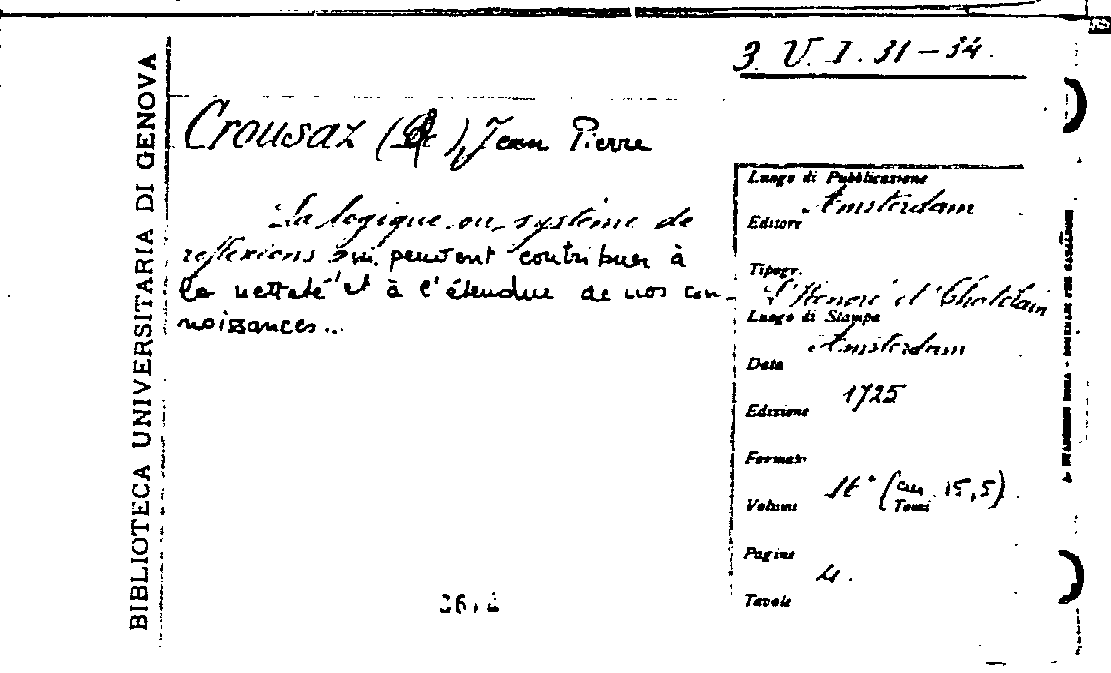 3. V. I. 31-34.
BIBLIOTECA UNIVERSITARIA DI GENOVA
Crousaz (De), Jean Pierre
La logique ou système de
reflexions qui peuvent contribuer à
la netteté et à l'étendue de nos con-
noissances...
Luogo di Pubblicazione
Amsterdam
Editore
Tipogr.
L'Honoré et Chatelain
Luogo di Stampa
Amsterdam
Data
1725
Edizione
Formato
16° (cm. 15,5)
Volumi
Tomi
Pagine
4.
Tavole